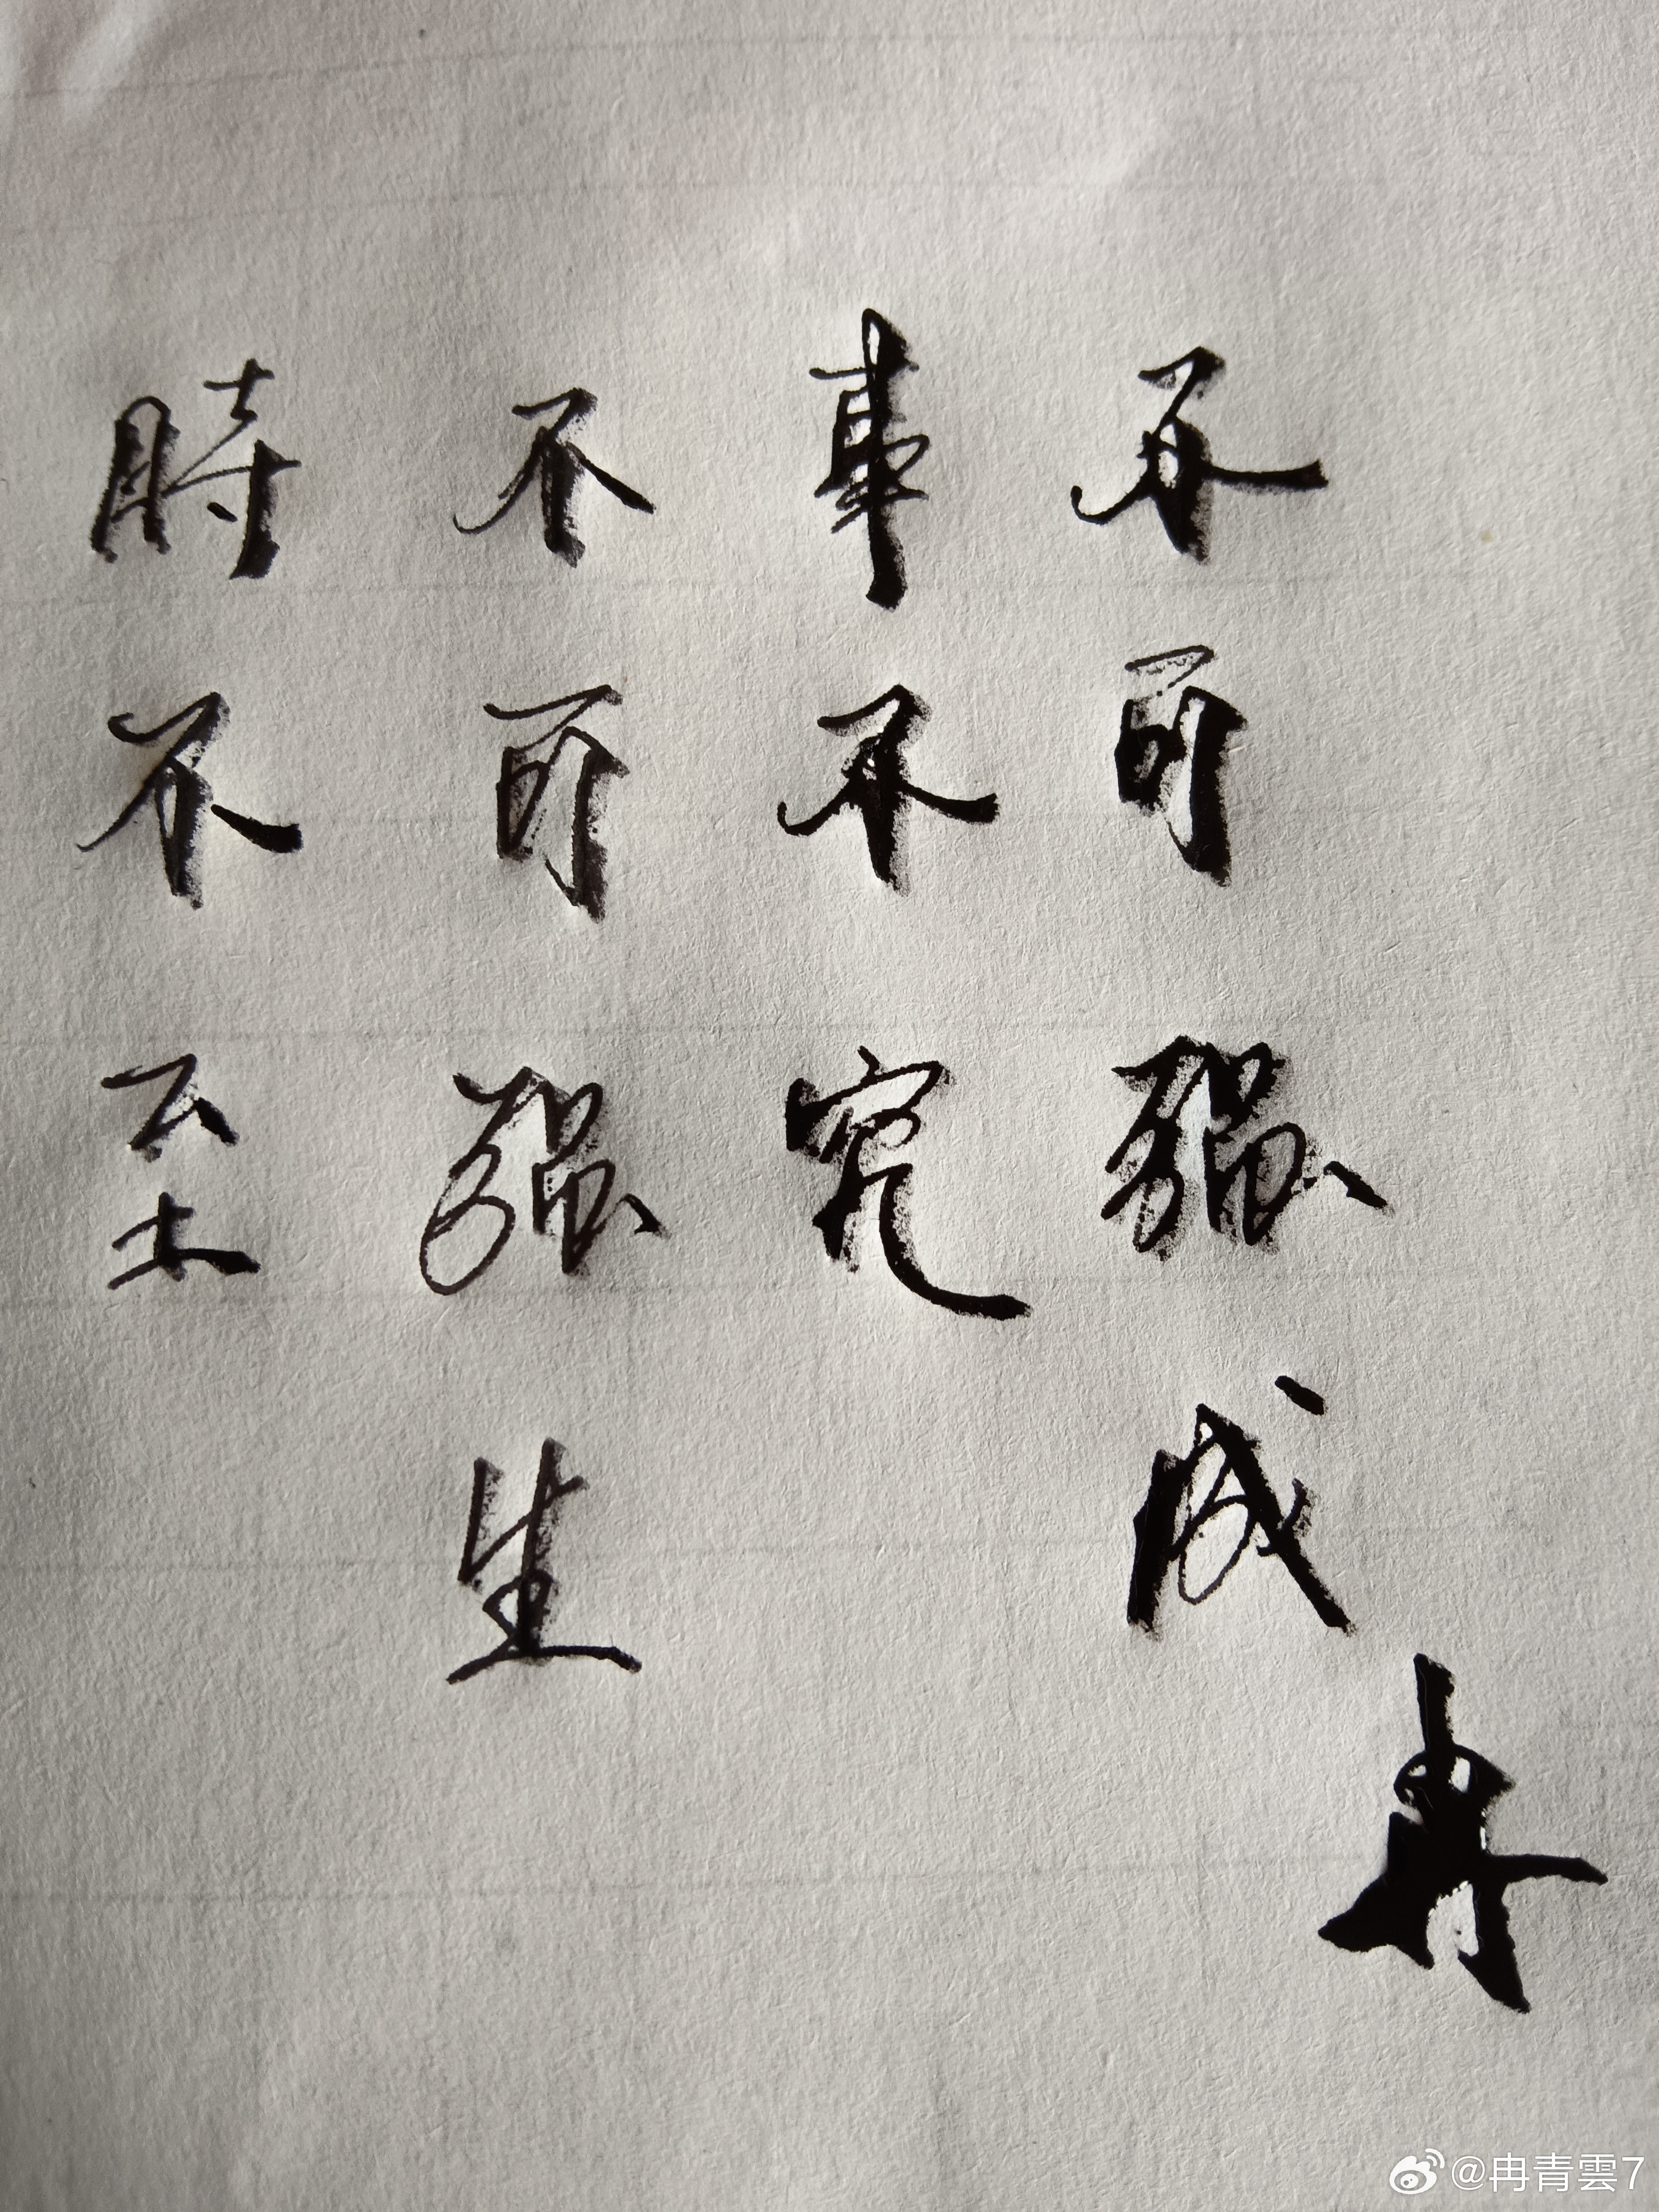 時不至
不可强生
事不究
不可强成
冉
@冉青雲7